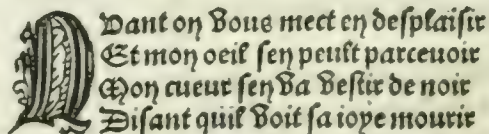 Quant on vous mect en desplaisir
Et mon oeil sen peust parceuoir
Mon cueur sen va vestir de noir
Disant quil voit sa ioye mourir